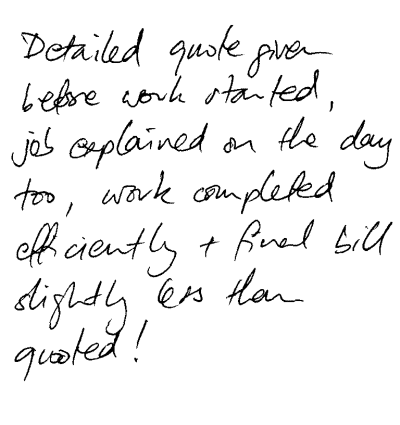 Detailed quote given
before work started,
job explained on the day
too, work completed
efficiently + final bill
slightly less than
quoted!